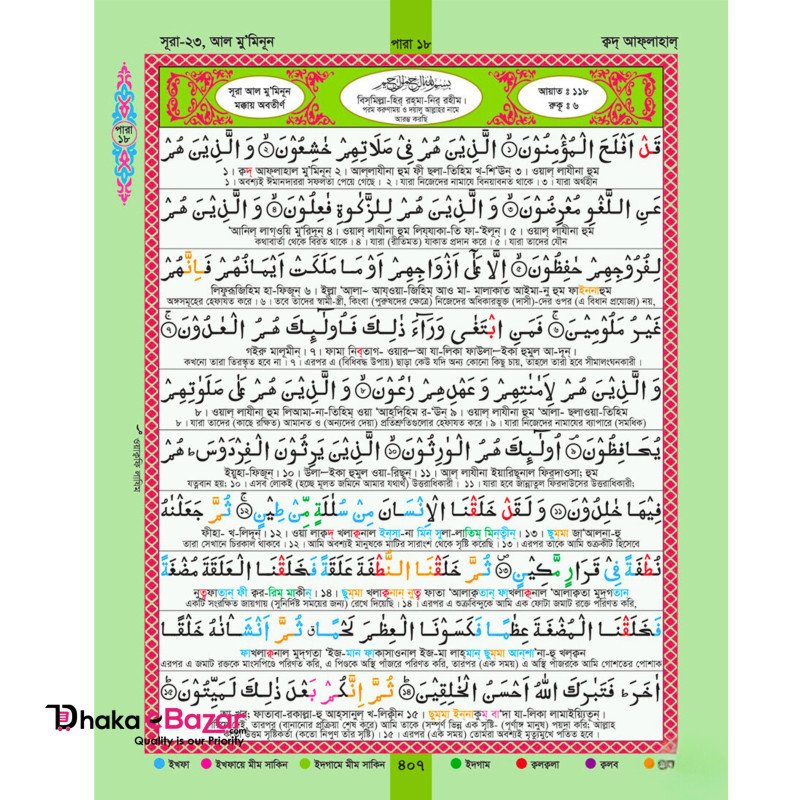 সূরা-২৩, আল মু'মিনূন
পারা ১৮
ক্বদ্ আফ্‌লাহাল্
সূরা আল মু'মিনূন
মক্কায় অবতীর্ণ
بِسْمِ اللهِ الرَّحْمٰنِ الرَّحِيْمِ
বিস্‌মিল্লা-হির্ রহ্‌মা-নির্ রহীম।
পরম করুণাময় ও দয়ালু আল্লাহর নামে
আরম্ভ করছি
আয়াত : ১১৮
রুকূ : ৬
পারা
১৮
قَدْ اَفْلَحَ الْمُؤْمِنُوْنَ ۙ﴿১﴾ الَّذِيْنَ هُمْ فِيْ صَلَاتِهِمْ خٰشِعُوْنَ ۙ﴿২﴾ وَ الَّذِيْنَ هُمْ
১। ক্বদ্ আফ্‌লাহাল মু'মিনূন্ ২। আল্‌লাযীনা হুম ফী ছলা-তিহিম খ-শি'ঊন্ ৩। ওয়াল্ লাযীনা হুম
১। অবশ্যই ঈমানদাররা সফলতা পেয়ে গেছে। ২। যারা নিজেদের নামাযে বিনয়াবনত থাকে। ৩। যারা অর্থহীন
عَنِ اللَّغْوِ مُعْرِضُوْنَ ۙ﴿৩﴾ وَ الَّذِيْنَ هُمْ لِلزَّكٰوةِ فٰعِلُوْنَ ۙ﴿৪﴾ وَ الَّذِيْنَ هُمْ
'আনিল্ লাগ্‌ওয়ি মু'রিদূন্ ৪। ওয়াল্ লাযীনা হুম লিয্‌যাকা-তি ফা-'ইলূন্। ৫। ওয়াল্ লাযীনা হুম
কথাবার্তা থেকে বিরত থাকে। ৪। যারা (রীতিমত) যাকাত প্রদান করে। ৫। যারা তাদের যৌন
لِفُرُوْجِهِمْ حٰفِظُوْنَ ۙ﴿৫﴾ اِلَّا عَلٰٓى اَزْوَاجِهِمْ اَوْ مَا مَلَكَتْ اَيْمَانُهُمْ فَاِنَّهُمْ
লিফুরূজিহিম হা-ফিজূন্ ৬। ইল্লা 'আলা- আয্‌ওয়া-জিহিম্ আও মা- মালাকাত আইমা-নু হুম ফাইননাহুম
অঙ্গসমূহের হেফাযত করে। ৬। তবে তাদের স্বামী-স্ত্রী, কিংবা (পুরুষদের ক্ষেত্রে) নিজেদের অধিকারভুক্ত (দাসী)-দের ওপর (এ বিধান প্রযোজ্য) নয়,
غَيْرُ مَلُوْمِيْنَ ۚ﴿৬﴾ فَمَنِ ابْتَغٰى وَرَآءَ ذٰلِكَ فَاُولٰٓئِكَ هُمُ الْعٰدُوْنَ ۚ﴿৭﴾
গইরু মালূমীন্। ৭। ফামা নিব্‌তাগ- ওয়ার—আ যা-লিকা ফাউলা—ইকা হুমুল আ-দূন্।
কখনো তারা তিরস্কৃত হবে না। ৭। এরপর এ (বিধিবদ্ধ উপায়) ছাড়া কেউ যদি অন্য কোনো কিছু চায়, তাহলে তারা হবে সীমালংঘনকারী।
وَ الَّذِيْنَ هُمْ لِاَمٰنٰتِهِمْ وَعَهْدِهِمْ رٰعُوْنَ ۙ﴿৮﴾ وَ الَّذِيْنَ هُمْ عَلٰى صَلَوٰتِهِمْ
৮। ওয়াল্ লাযীনা হুম লিআমা-না-তিহিম্ ওয়া 'আহদিহিম র-'ঊন্ ৯। ওয়াল্ লাযীনা হুম 'আলা- ছলাওয়া-তিহিম
৮। যারা তাদের (কাছে রক্ষিত) আমানত ও (অন্যদের দেয়া) প্রতিশ্রুতিগুলোর হেফাযত করে। ৯। যারা নিজেদের নামাযের ব্যাপারে (সমধিক)
يُحَافِظُوْنَ ۘ﴿৯﴾ اُولٰٓئِكَ هُمُ الْوٰرِثُوْنَ ۙ﴿১০﴾ الَّذِيْنَ يَرِثُوْنَ الْفِرْدَوْسَ ؕ هُمْ
ইয়ুহা-ফিজূন্। ১০। উলা—ইকা হুমুল ওয়া-রিছূন। ১১। আল্ লাযীনা ইয়ারিছূনাল্ ফিরদাওসা; হুম
যত্নবান হয়; ১০। এসব লোকই (হচ্ছে মূলত জমিনে আমার যথার্থ) উত্তরাধিকারী। ১১। যারা হবে জান্নাতুল ফিরদাউসের উত্তরাধিকারী;
فِيْهَا خٰلِدُوْنَ ﴿১১﴾ وَ لَقَدْ خَلَقْنَا الْاِنْسَانَ مِنْ سُلٰلَةٍ مِّنْ طِيْنٍ ۚ﴿১২﴾ ثُمَّ جَعَلْنٰهُ
ফীহা- খ-লিদূন্। ১২। ওয়া লাক্বদ্ খলাক্বনাল ইন্‌সা-না মিন্ সুলা-লাতিম্ মিনত্বীন্। ১৩। ছুম্‌মা জা'আলনা-হু
তারা সেখানে চিরকাল থাকবে। ১২। আমি অবশ্যই মানুষকে মাটির সারাংশ থেকে সৃষ্টি করেছি। ১৩। এরপর তাকে আমি শুক্রকীট হিসেবে
نُطْفَةً فِيْ قَرَارٍ مَّكِيْنٍ ۪﴿১৩﴾ ثُمَّ خَلَقْنَا النُّطْفَةَ عَلَقَةً فَخَلَقْنَا الْعَلَقَةَ مُضْغَةً
নুত্বফাতান্ ফী ক্বর-রিম্ মাকীন। ১৪। ছুম্‌মা খলাক্বনান্ নুত্ব ফাতা 'আলাক্বতান্ ফাখলাক্বনাল্ 'আলাক্বতা মুদগতান্
একটি সংরক্ষিত জায়গায় (সুনির্দিষ্ট সময়ের জন্য) রেখে দিয়েছি। ১৪। এরপর এ শুক্রবিন্দুকে আমি এক ফোটা জমাট রক্তে পরিণত করি,
فَخَلَقْنَا الْمُضْغَةَ عِظٰمًا فَكَسَوْنَا الْعِظٰمَ لَحْمًا ٭ ثُمَّ اَنْشَاْنٰهُ خَلْقًا
ফাখলাক্বনাল মুদ্‌গতা 'ইজ-মান ফাকাসাওনাল 'ইজ-মা লাহ্‌মান্ ছুম্‌মা আনশা'না-হু খলক্বন
এরপর এ জমাট রক্তকে মাংসপিণ্ডে পরিণত করি, এ পিণ্ডকে অস্থি পাঁজরে পরিণত করি, তারপর (এক সময়) এ অস্থি পাঁজরকে আমি গোশতের পোশাক
اٰخَرَ ؕ فَتَبٰرَكَ اللهُ اَحْسَنُ الْخٰلِقِيْنَ ؕ﴿১৪﴾ ثُمَّ اِنَّكُمْ بَعْدَ ذٰلِكَ لَمَيِّتُوْنَ ؕ﴿১৫﴾
ফাতাবা-রকাল্লা-হু আহসানুল্ খ-লিক্বীন ১৫। ছুম্‌মা ইননাকুম বা'দা যা-লিকা লামাইয়্যিতূন্।
তারপর (বানানোর প্রক্রিয়া শেষ করে) আমি তাকে (সম্পূর্ণ ভিন্ন এক সৃষ্টি- (পূর্ণাঙ্গ মানুষ) পয়দা করি; আল্লাহ
উত্তম সৃষ্টিকর্তা (কতো নিপুণ তাঁর সৃষ্টি)। ১৫। এরপর (এক সময়) তোমরা অবশ্যই মৃত্যুমুখে পতিত হবে।
Dhaka e-Bazar.com
Quality is our Priority
ইখফা
ইখফায়ে মীম সাকিন
ইদগামে মীম সাকিন
৪০৭
ইদগাম
ক্বলক্বলা
ক্বলব